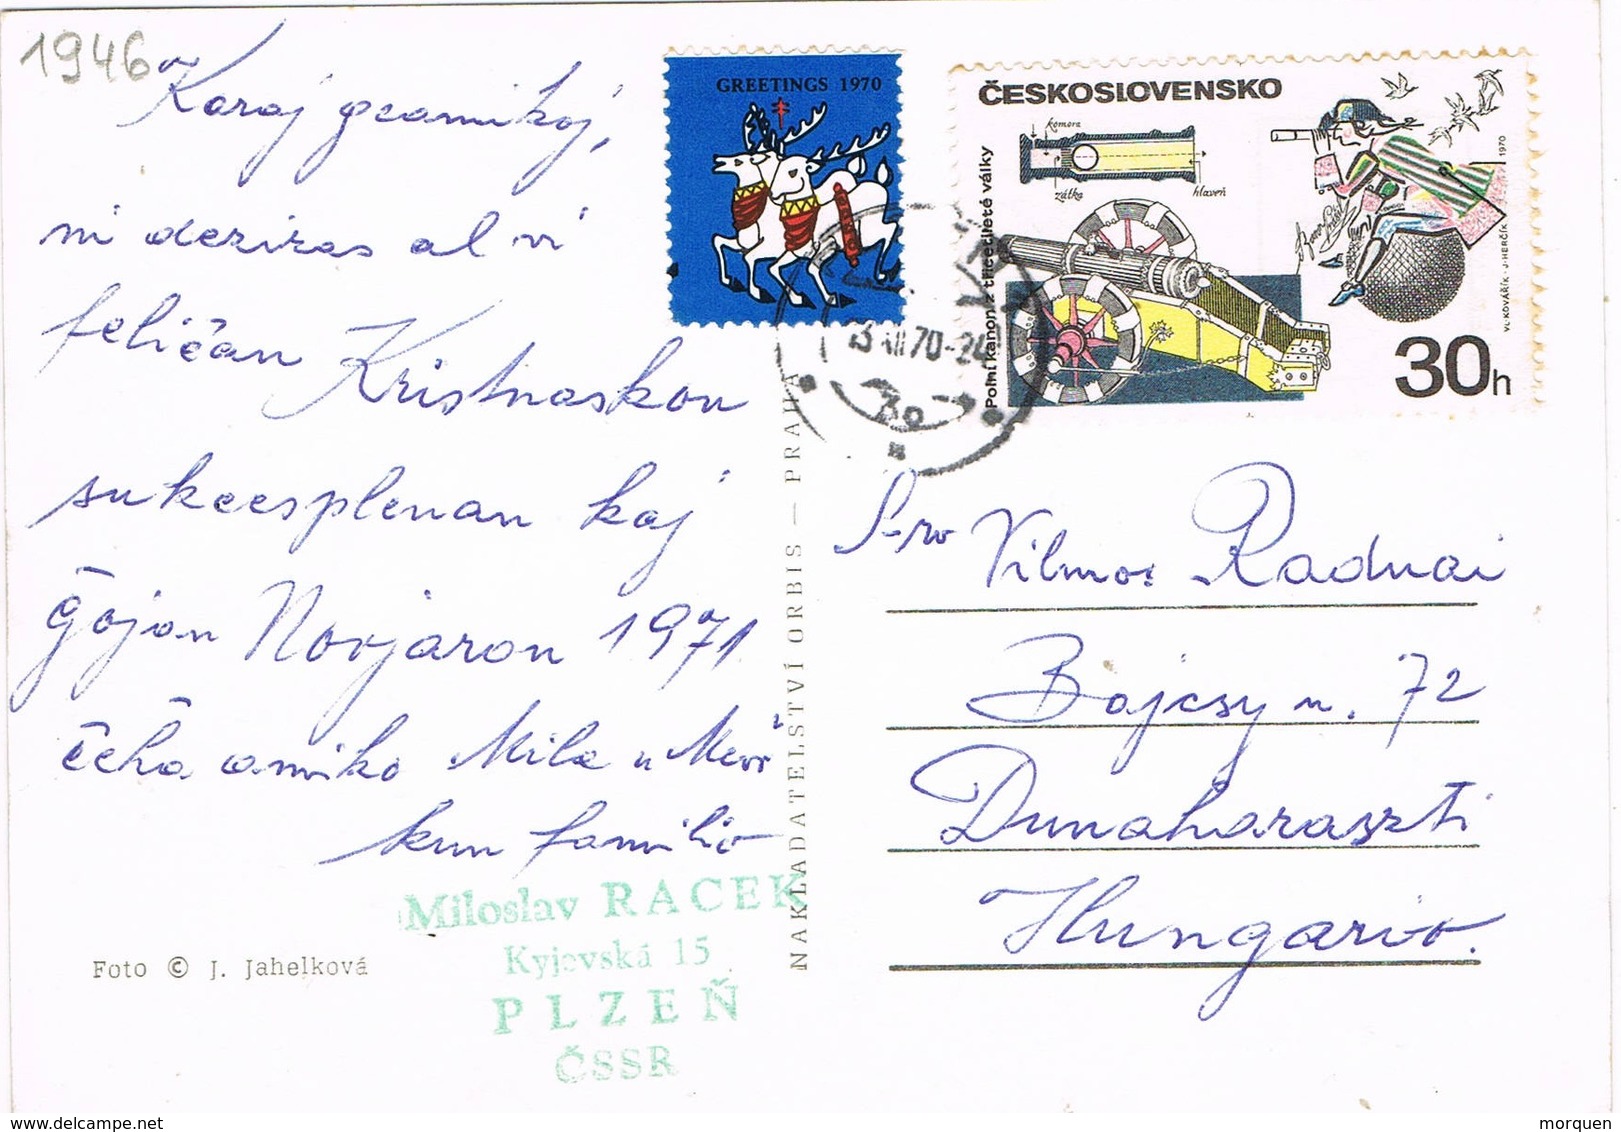 1946
Karaj geamikoj,
ni deziras al vi
feličan Kristnaskon
sukcesplenan kaj
ĝojan Novjaron 1971
čeha amiko Mila
kun familio
Miloslav RACEK
Kyjevská 15
PLZEŇ
ČSSR
Foto © J. Jahelková
NAKLADATELSTVÍ ORBIS — PRAHA
GREETINGS 1970
ČESKOSLOVENSKO
komora
zátka hlaveň
Polní kanon z třicetileté války
VL. KOVÁŘÍK - J. HERČÍK 1970
30h
13.XII.70-24
S-ro Vilmos Radnai
Bajcsy u. 72
Dunaharaszti
Hungario.
morquen